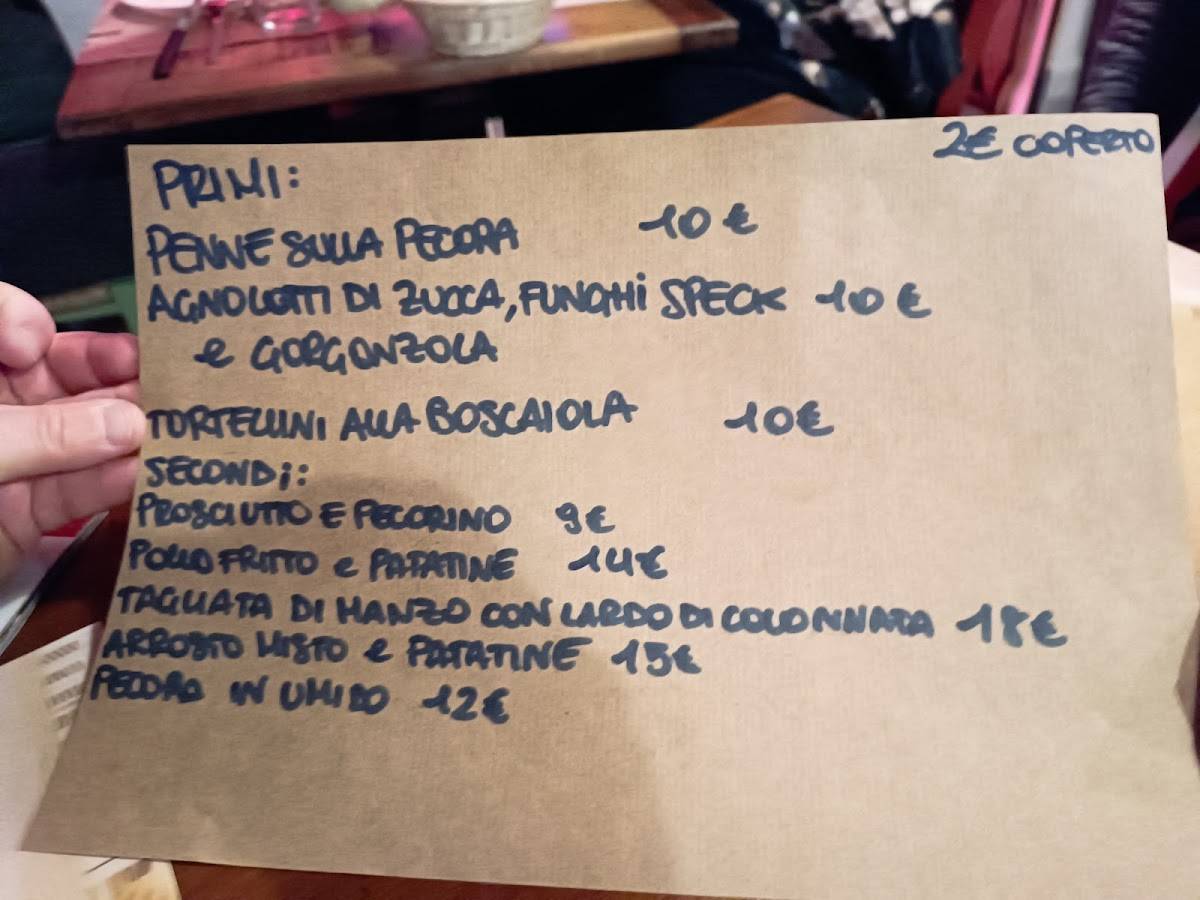 2€ COPERTO
PRIMI:
PENNE SULLA PECORA 10 €
AGNOLOTTI DI ZUCCA, FUNGHI SPECK 10 €
e GORGONZOLA
TORTELLINI ALLA BOSCAIOLA 10€
SECONDI:
PROSCIUTTO E PECORINO 9€
POLLO FRITTO e PATATINE 14€
TAGLIATA DI MANZO CON LARDO DI COLONNATA 18€
ARROSTO MISTO e PATATINE 15€
PECORA IN UMIDO 12€